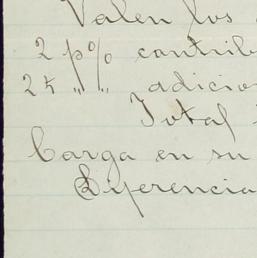 Valen los
2 p% contrib
25 " " adicio
Total
Carga en su
Diferencia